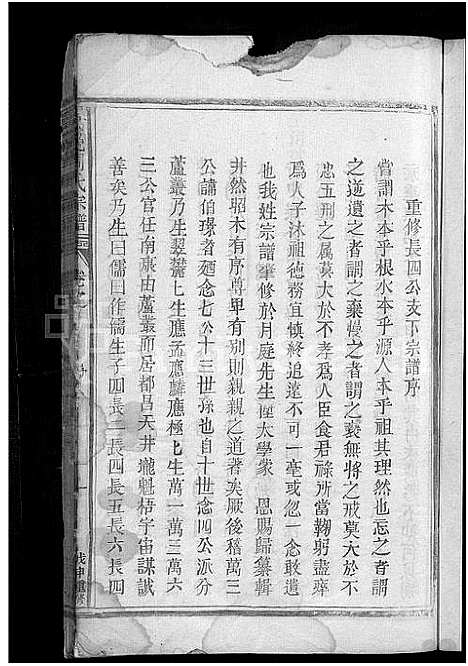 重修長四公支下宗譜序
嘗謂木本乎根水本乎源人本乎祖其理然也忘之者謂
之逆遺之者謂之棄慢之者謂之褻無將之戒莫大於不
忠五刑之属莫大於不孝爲人臣食君祿所當鞠躬盡瘁
爲人子沐祖德務宜慎終追遠不可一毫或忽一念敢遺
也我姓宗譜肇修於月庭先生陞太學蒙 恩賜歸纂輯
井然昭木有序尊卑有别則親親之道著矣厥後稽萬三
公諱伯璟者廼念七公十三世孫也自十世念四公派分
蘆叢乃生翠鬱七生應孟應麟應極七生萬一萬三萬六
三公官任南康由蘆叢而居都昌天井壠魁梧宇宙謀誠
善矣乃生曰儒曰作儒生子四長二長四長五長六長四
氏宗譜
戊申重修